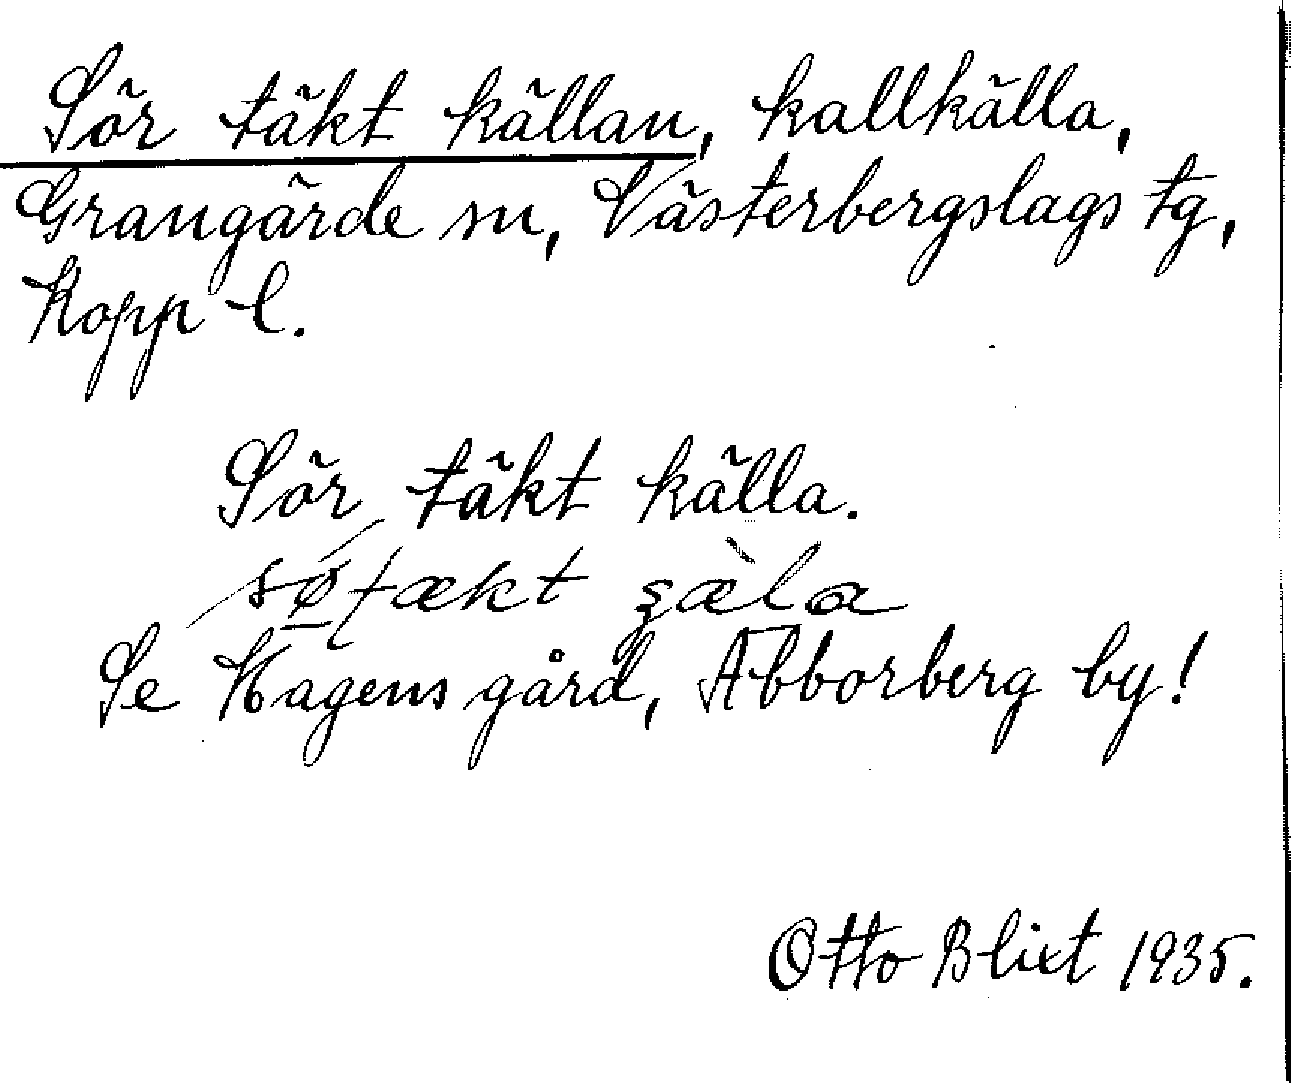 Sör täkt källan, kallkälla,
Grangärde sn, Västerbergslags tg,
Kopp l.
Sör täkt källa.
Se Hagens gård, Abborberg by!
Otto Blixt 1935.